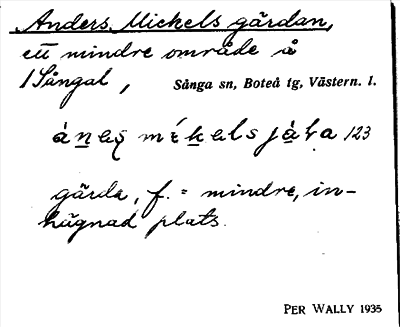 Anders Mickels gärdan,
ett mindre område å
1 Sångal, Sånga sn, Boteå tg, Västern. l.
123
gärda, f. = mindre, in-
hägnad plats.
PER WALLY 1935